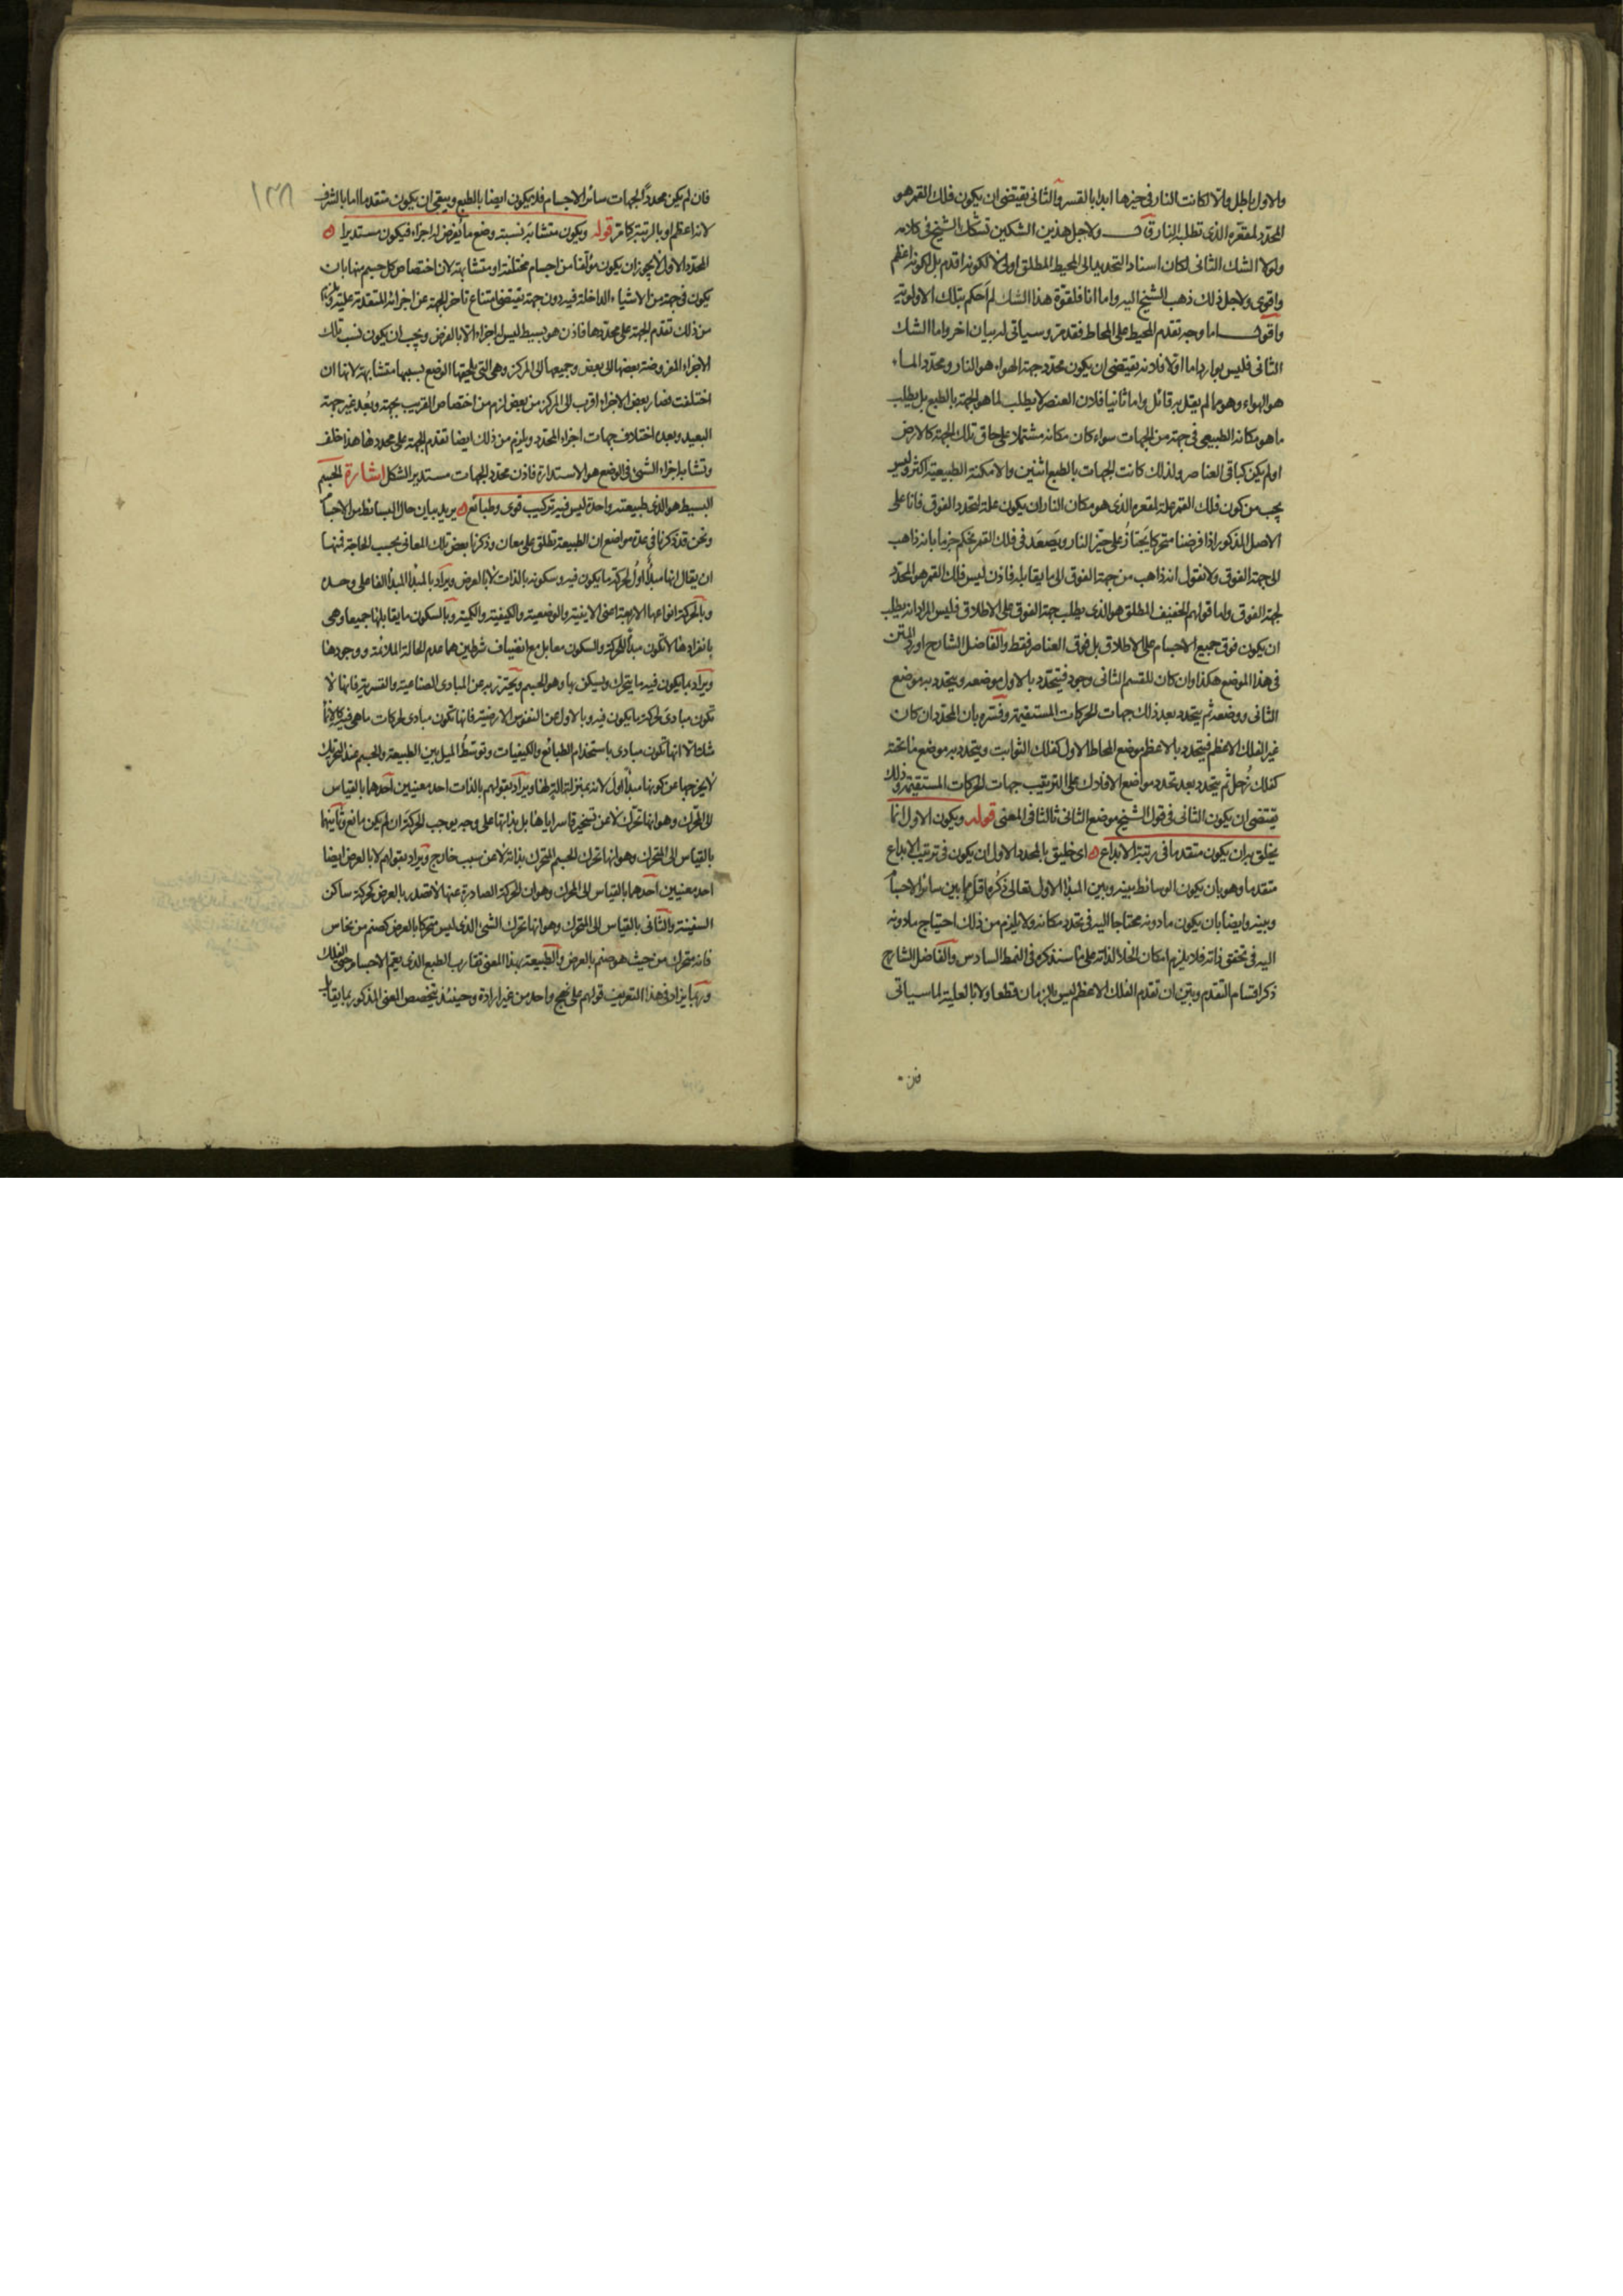 والاول باطل والا لكانت النار فى حيزها ابدا بالقسر والثانى يقتضى ان يكون فلك القمر هو
المحدد لمقعره الذى تطلبه النار قال ولاجل هذين الشكين تشكك الشيخ فى كلامه
ولولا الشك الثانى لكان اسناد التحديد الى المحيط المطلق اولى لا لكونه اقدم بل لكونه اعظم
واقوى ولاجل ذلك ذهب الشيخ اليه واما انا فلقوة هذا الشك لم احكم بتلك الاولوية
واقول اما وجه تقدم المحيط على المحاط فقد مر وسياتى له بيان اخر واما الشك
الثانى فليس بوارد اما اولا فلانه يقتضى ان يكون محدد جهة الهواء هو النار ومحدد الماء
هو الهواء وهو ما لم يقل به قائل واما ثانيا فلان العنصر لا يطلب لما هو الجهة بالطبع بل يطلب
ما هو مكانه الطبيعى فى جهة من الجهات سواء كان مكانه مشتملا على حاق تلك الجهة كالارض
او لم يكن كباقى العناصر ولذلك كانت الجهات بالطبع اثنين والامكنة الطبيعية اكثر وليس
يجب من كون فلك القمر علة لمقعره الذى هو مكان النار ان يكون علة لتحدد الفوق فانا على
الاصل المذكور اذا فرضنا متحركا يجتاز على حيز النار ويصعد فى فلك القمر نحكم جزما بانه ذاهب
الى جهة الفوق ولا نقول انه ذاهب من جهة الفوق الى ما يقابله فاذن ليس فلك القمر هو المحدد
لجهة الفوق واما قولهم الخفيف المطلق هو الذى يطلب جهة الفوق على الاطلاق فليس المراد انه يطلب
ان يكون فوق جميع الاجسام على الاطلاق بل فوق العناصر فقط والفاضل الشارح اورد المتن
فى هذا الموضع هكذا وان كان للقسم الثانى وجود فيتحدد بالاول موضعه ويتحدد به موضع
الثانى ووضعه ثم يتحدد بعد ذلك جهات الحركات المستقيمة وفسره بان المحدد ان كان
غير الفلك الاعظم فيتحدد بالاعظم موضع المحاط الاول كفلك الثوابت ويتحدد به موضع ما تحته
كفلك زحل ثم يتحدد بعد تحدد مواضع الافلاك على الترتيب جهات الحركات المستقيمة وذلك
يقتضى ان يكون الثانى فى قول الشيخ موضع الثانى ثالثا فى المعنى قوله ويكون الاول انما
يخلق به ان يكون متقدما فى رتبة الابداع ه اى خليق بالمحدد الاول ان يكون فى ترتيب الابداع
متقدما وهو بان يكون الوسائط بينه وبين المبدا الاول تعالى ذكره اقل مما بين سائر الاجسام
وبينه وايضا بان يكون ما دونه محتاجا اليه فى تحدد مكانه ولا يلزم من ذلك احتياج ما دونه
اليه فى تحقق ذاته فلا يلزم امكان الخلا لذاته على ما سنذكره فى النمط السادس والفاضل الشارح
ذكر اقسام التقدم وبين ان تقدم الفلك الاعظم ليس بالزمان قطعا ولا بالعلية لما سياتى
١٣٨
فان لم يكن محددا لجهات سائر الاجسام فلا يكون ايضا بالطبع وبقى ان يكون متقدما اما بالشرف
لانه اعظم او بالرتبة كما مر قوله ويكون متشابه نسبة وضع ما يفرض له اجزاء فيكون مستديرا ه
المحدد الاول لا يجوز ان يكون مؤلفا من اجسام مختلفة او متشابهة لان اختصاص كل جسم منها بان
يكون فى جهة من الاشياء الداخلة فيه دون جهة يقتضى امتناع تاخر الجهة عن اجزائه المتقدمة عليه ويلزم
من ذلك تقدم الجهة على محددها فاذن هو بسيط ليس له اجزاء الا بالفرض ويجب ان يكون نسب تلك
الاجزاء المفروضة بعضها الى بعض وجميعها الى المركز وهى التى يلحقها الوضع بسببها متشابهة لانها ان
اختلفت فصار بعض الاجزاء اقرب الى المركز من بعض لزم من اختصاص القريب بجهة وبعد غير جهة
البعيد وبعده اختلاف جهات اجزاء المحدد ويلزم من ذلك ايضا تقدم الجهة على محددها هذا خلف
وتشابه اجزاء الشئ فى الوضع هو الاستدارة فاذن محدد الجهات مستدير الشكل اشارة الجسم
البسيط هو الذى طبيعته واحدة ليس فيه تركيب قوى وطبائع ه يريد بيان حال البسائط من الاجسام
ونحن قد ذكرنا فى عدة مواضع ان الطبيعة تطلق على معان وذكرنا بعض تلك المعانى بحسب الحاجة فمنها
ان يقال انها مبدأ اول لحركة ما يكون فيه وسكونه بالذات لا بالعرض ويراد بالمبدأ المبدأ الفاعلى وحده
وبالحركة انواعها الاربعة اعنى الاينية والوضعية والكيفية والكمية وبالسكون ما يقابلها جميعا وهى
بانفرادها لا تكون مبدأ للحركة والسكون معا بل مع انضياف شرطين هما عدم الحالة الملائمة ووجودها
ويراد بما يكون فيه ما يتحرك ويسكن بها وهو الجسم ويحترز به عن المبادى الصناعية والقسرية فانها لا
تكون مبادى لحركة ما يكون فيه وبالاول عن النفوس الارضية فانها تكون مبادى لحركات ما هى فيه كالانماء
مثلا الا انها تكون مبادى باستخدام الطبائع والكيفيات وتوسط الميل بين الطبيعة والجسم عند التحريك
لا يخرجها عن كونها مبدأ اول لانه بمنزلة الة لها ويراد بقولهم بالذات احد معنيين احدهما بالقياس
الى المحرك وهو انها تحرك لا عن تسخير قاسر اياها بل بذاتها على وجه يوجب الحركة ان لم يكن مانع وثانيهما
بالقياس الى المتحرك وهو انها تحرك الجسم المتحرك بذاته لا عن سبب خارج ويراد بقولهم لا بالعرض ايضا
احد معنيين احدهما بالقياس الى المحرك وهو ان الحركة الصادرة عنها لا تصدر بالعرض كحركة ساكن
السفينة والثانى بالقياس الى المتحرك وهو انها تحرك الشئ الذى ليس متحركا بالعرض كصنم من نحاس
فانه متحرك من حيث هو صنم بالعرض والطبيعة بهذا المعنى تقارب الطبع الذى يعم الاجسام حتى الفلك
وربما يزاد فى هذا التعريف قولهم على نهج واحد من غير ارادة وحينئذ يتخصص المعنى المذكور بما يقابل